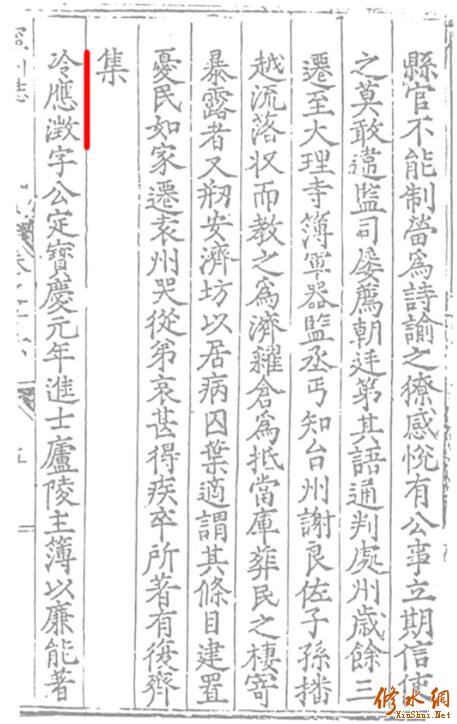 縣官不能制甞爲詩諭之獠感悅有公事立期信使
之莫敢違監司屡薦朝廷第其語通判處州歲餘三
遷至大理寺簿軍器監丞丐知台州謝良佐子孫播
越流落収而教之爲濟糴倉爲抵當庫葬民之棲寄
暴露者又刱安濟坊以居病囚葉適謂其條目建置
憂民如家遷袁州哭從弟哀甚得疾卒所著有復齊
集
冷應澂字公定寶慶元年進士廬陵主簿以廉能著
修水網
XiuShui.Net